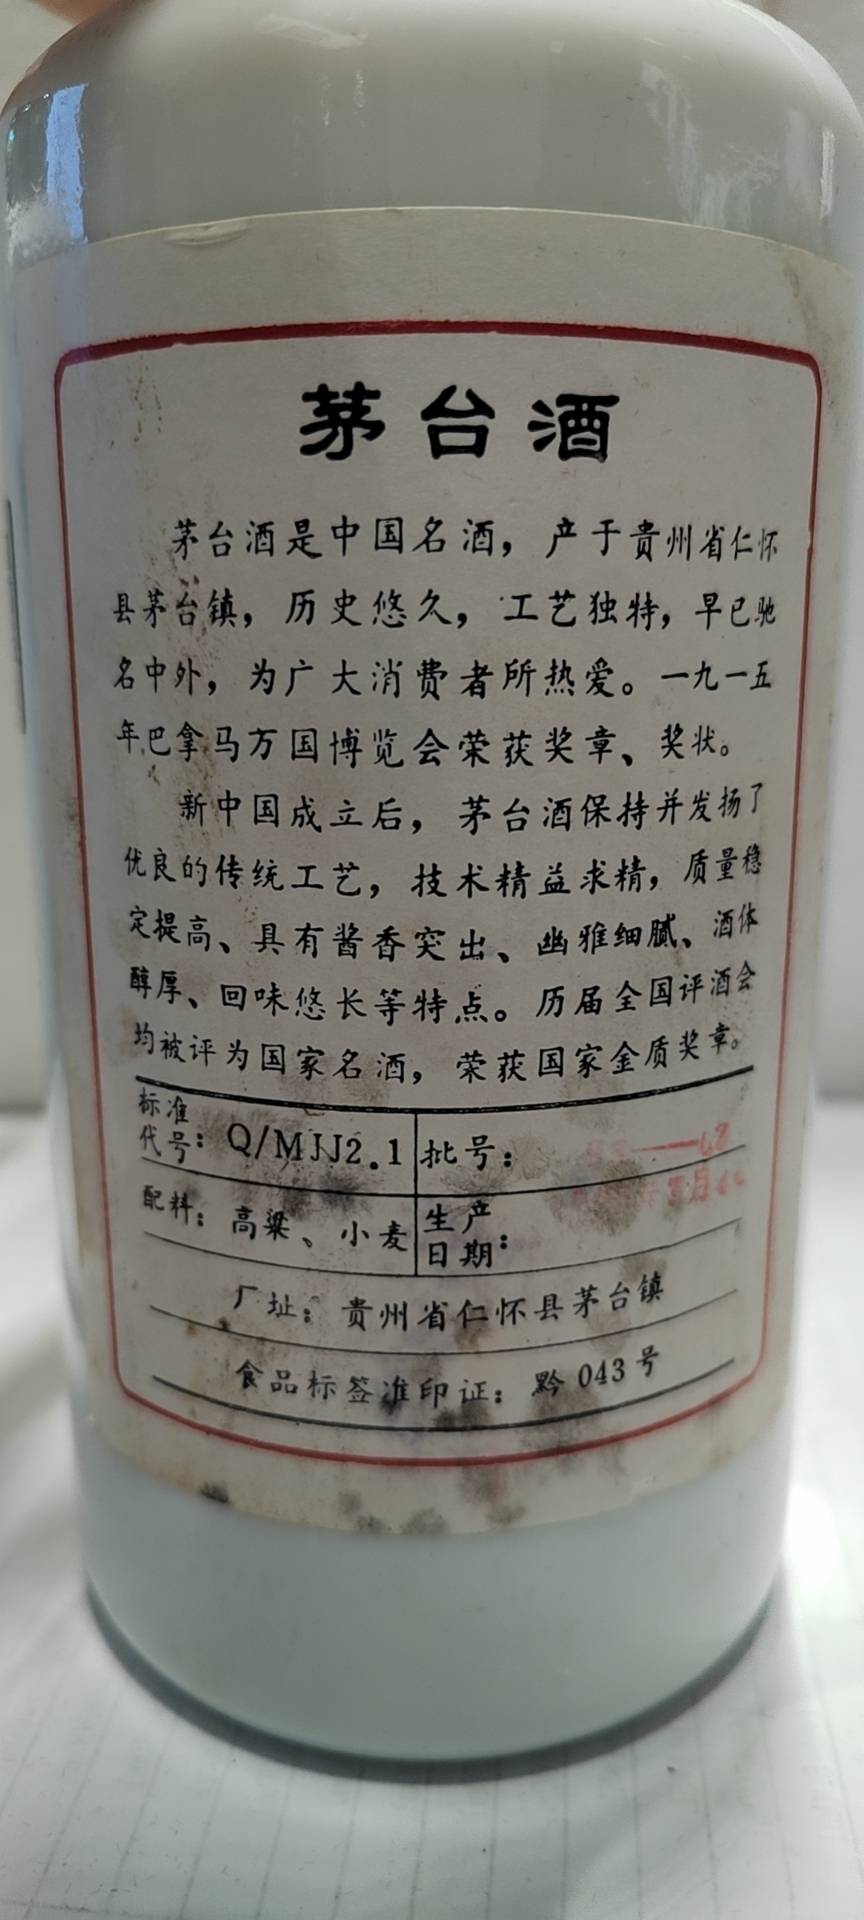 茅台酒
茅台酒是中国名酒，产于贵州省仁怀
县茅台镇，历史悠久，工艺独特，早已驰
名中外，为广大消费者所热爱。一九一五
年巴拿马万国博览会荣获奖章、奖状。
新中国成立后，茅台酒保持并发扬了
优良的传统工艺，技术精益求精，质量稳
定提高、具有酱香突出、幽雅细腻、酒体
醇厚、回味悠长等特点。历届全国评酒会
均被评为国家名酒，荣获国家金质奖章。
标准代号：Q/MJJ2.1 批号：
配料：高粱、小麦 生产日期：
厂址：贵州省仁怀县茅台镇
食品标签准印证：黔 043号